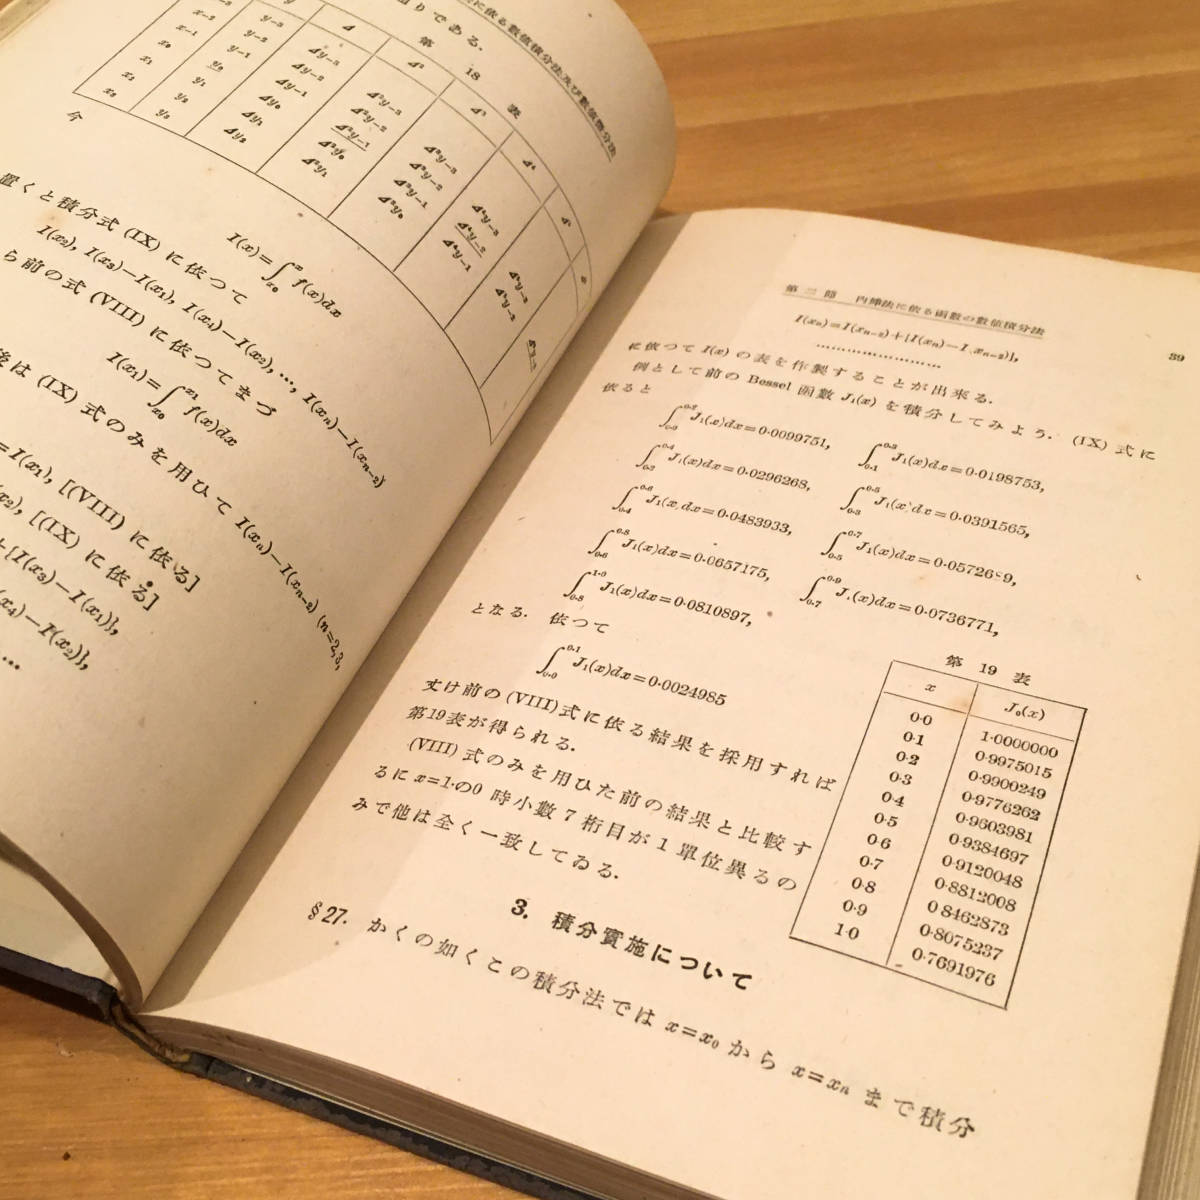 に依る数値積分法及び数値微分法
りである.
第 18 表
y Δ Δ² Δ³ Δ⁴ Δ⁵ 6
x₋₂ y₋₃ Δy₋₃ Δ²y₋₃ Δ³y₋₃ Δ⁴y₋₃
x₋₁ y₋₂ Δy₋₂ Δ²y₋₂ Δ³y₋₂ Δ⁴y₋₂
x₀ y₋₁ Δy₋₁ Δ²y₋₁ Δ³y₋₁ Δ⁴y₋₁
x₁ y₀ Δy₀ Δ²y₀ Δ³y₀
y₁ Δy₁ Δ²y₁
y₂ Δy₂
x₃ y₃
今
I(x)=∫ₓ₀ˣ f(x)dx
置くと積分式 (IX) に依つて
I(x₂), I(x₃)−I(x₁), I(x₄)−I(x₂), …, I(xₙ)−I(xₙ₋₂)
ら前の式 (VIII) に依つてまづ
I(x₁)=∫ₓ₀ˣ¹ f(x)dx
後は (IX) 式のみを用ひて I(xₙ)−I(xₙ₋₂) (n=2,3,
=I(x₁), [(VIII) に依る]
(x₂), [(IX) に依る]
+{I(x₃)−I(x₁)},
(x₄)−I(x₂)},
…
第二節 内挿法に依る函数の数値積分法
39
I(xₙ)=I(xₙ₋₂)+{I(xₙ)−I(xₙ₋₂)},
……………………
に依つて I(x) の表を作製することが出来る.
例として前の Bessel 函數 J₁(x) を積分してみよう. (IX) 式に
依ると
∫₀.₀⁰·² J₁(x)dx=0·0099751, ∫₀.₁⁰·³ J₁(x)dx=0·0198753,
∫₀.₂⁰·⁴ J₁(x)dx=0·0296268, ∫₀.₃⁰·⁵ J₁(x)dx=0·0391565,
∫₀.₄⁰·⁶ J₁(x)dx=0·0483933, ∫₀.₅⁰·⁷ J₁(x)dx=0·0572689,
∫₀.₆⁰·⁸ J₁(x)dx=0·0657175, ∫₀.₇⁰·⁹ J₁(x)dx=0·0736771,
∫₀.₈¹·⁰ J₁(x)dx=0·0810897,
となる. 依つて
∫₀.₀⁰·¹ J₁(x)dx=0·0024985
丈け前の (VIII) 式に依る結果を採用すれば
第19表が得られる.
(VIII) 式のみを用ひた前の結果と比較す
るに x=1·の0 時小數 7 桁目が 1 單位異るの
みで他は全く一致してゐる.
第 19 表
x J₀(x)
0·0 1·0000000
0·1 0·9975015
0·2 0·9900249
0·3 0·9776262
0·4 0·9603981
0·5 0·9384697
0·6 0·9120048
0·7 0·8812008
0·8 0 8462873
0·9 0·8075237
1·0 0·7691976
3. 積分實施について
§27. かくの如くこの積分法では x=x₀ から x=xₙ まで積分